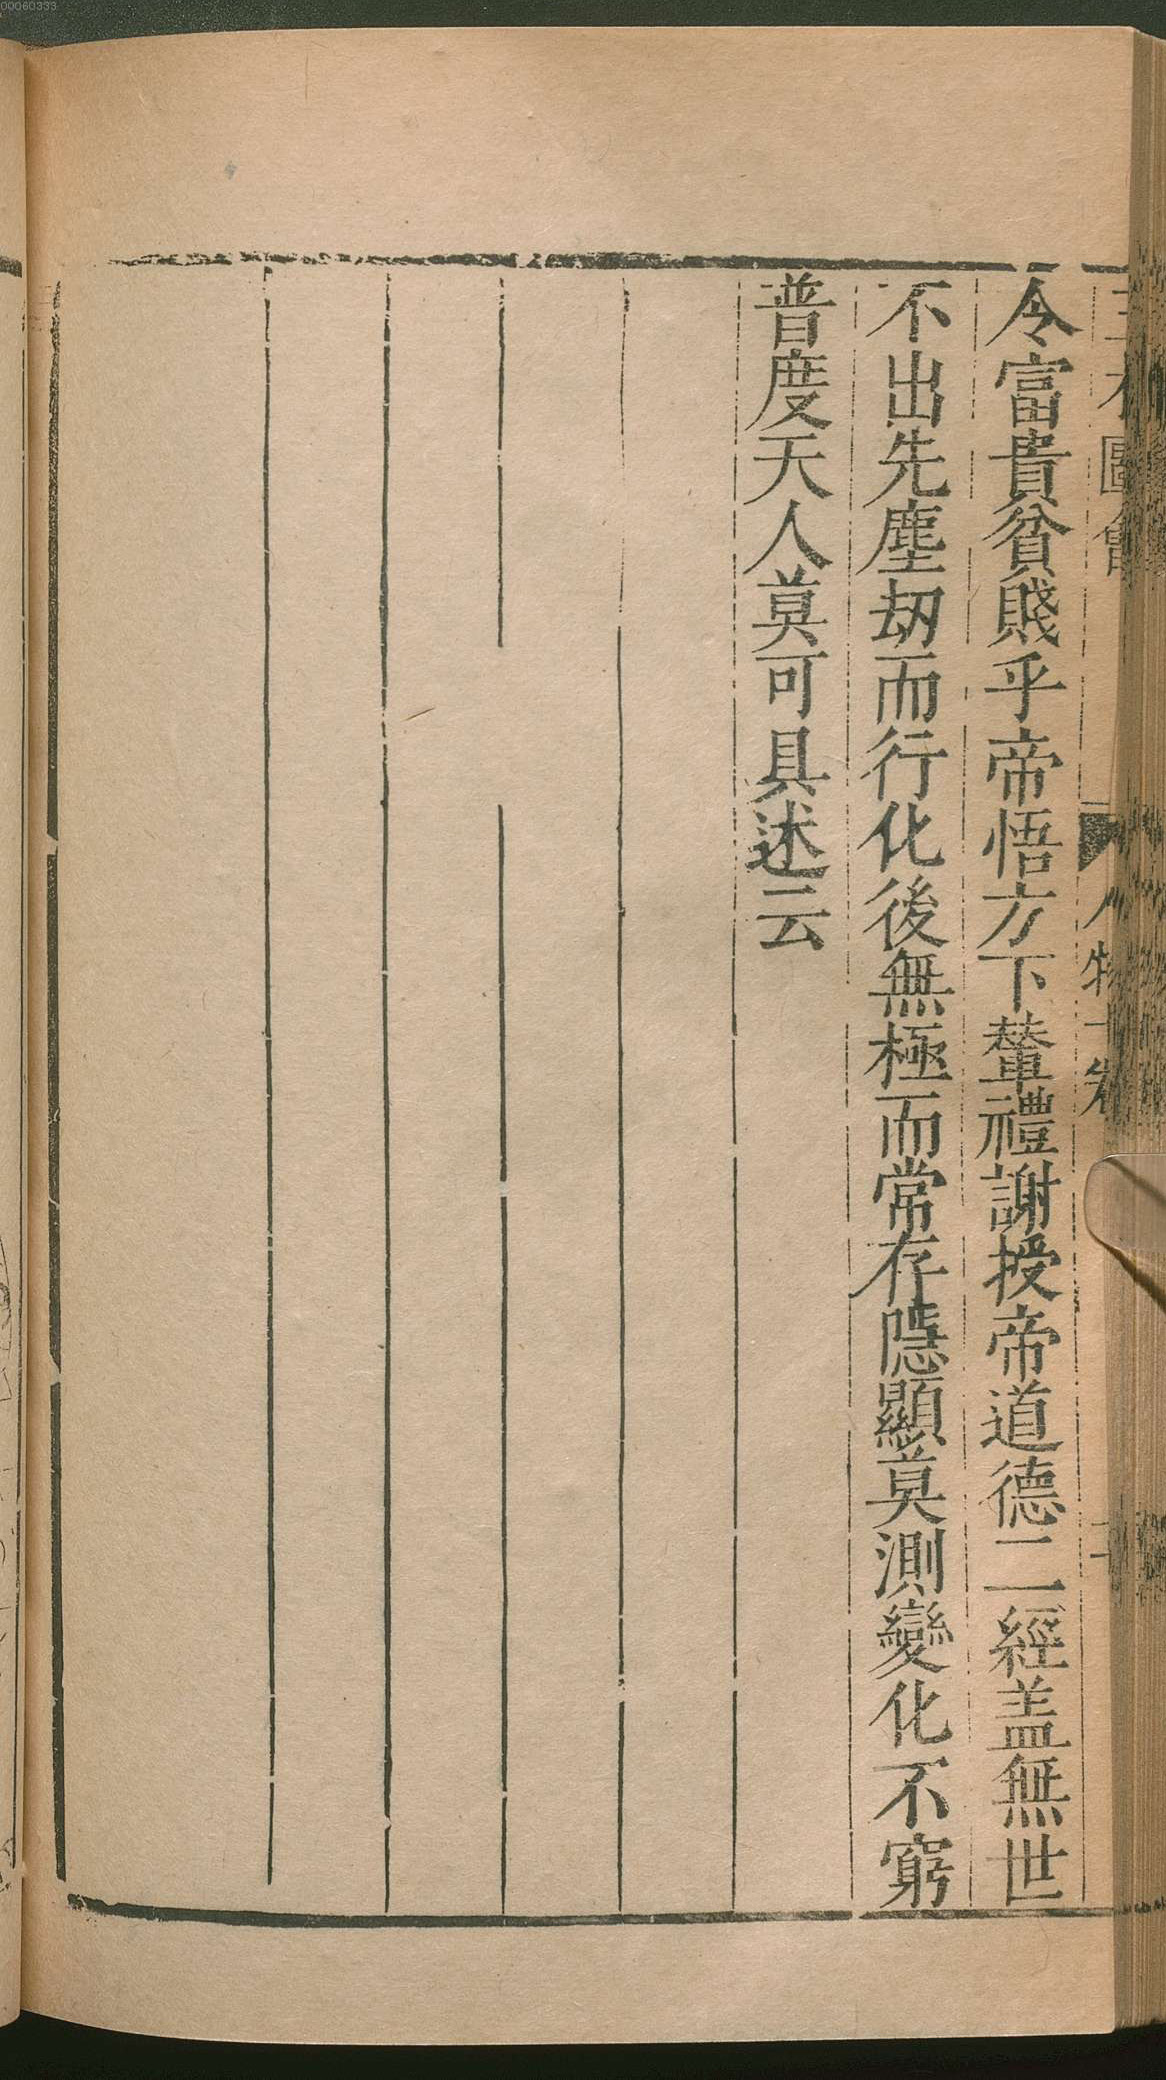 00060333
令富貴貧賤乎帝悟方下輦禮謝授帝道德二經盖無世
不出先塵刼而行化後無極而常存隱顯莫測變化不窮
普度天人莫可具述云